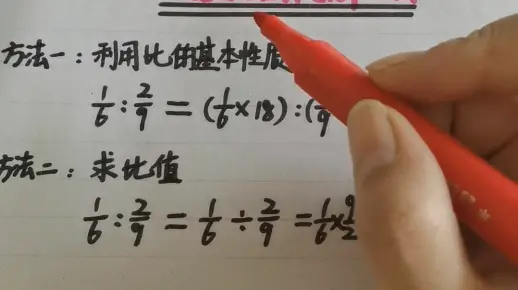 方法一：利用比的基本性质
1/6 : 2/9 = (1/6 × 18) : (
方法二：求比值
1/6 : 2/9 = 1/6 ÷ 2/9 = 1/6 × 9/2